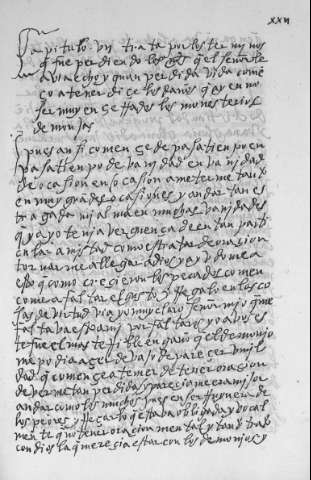 xxvi
capitulo. vii. trata por los terminos
que fue perdiendo las mrds quel señor le
avia echo y quan perdida vida comē
ço a tener diçe los daños que ay en no
ser muy ençeRados los monesterios
de monjas
pues ansi començe de pasatienpo en
pasatienpo de vanidad en vanidad
de ocasion en ocasion a meterme tanto
en muy grādes ocasiones y andar tan es
tragada mi alma en muchas vanidades
que ya yo tenia verguença de en tan parti
cular amistad como es tratar de oraçion
tornarme a llegar a dios y ayudome a
esto que como creçieron los pecados comen
çome a faltar el gusto y Regalo en las co
sas de virtud via yo muy claro señor mio que me
faltava esto a mi por faltaros yo a vos es
te fue el mas teRible engaño quel demonio
me podia açer debajo de pareçer umil
dad que comence a temer de tener oraçion
de verme tan perdida y pareçiame era mijor
andar como los muchos pues en ser Ruyn era de
los peores y Reçar lo que estava obligada y vocal
mente que no tener oraçion mental y tanto trato
con dios la que mereçia estar con los demonios y